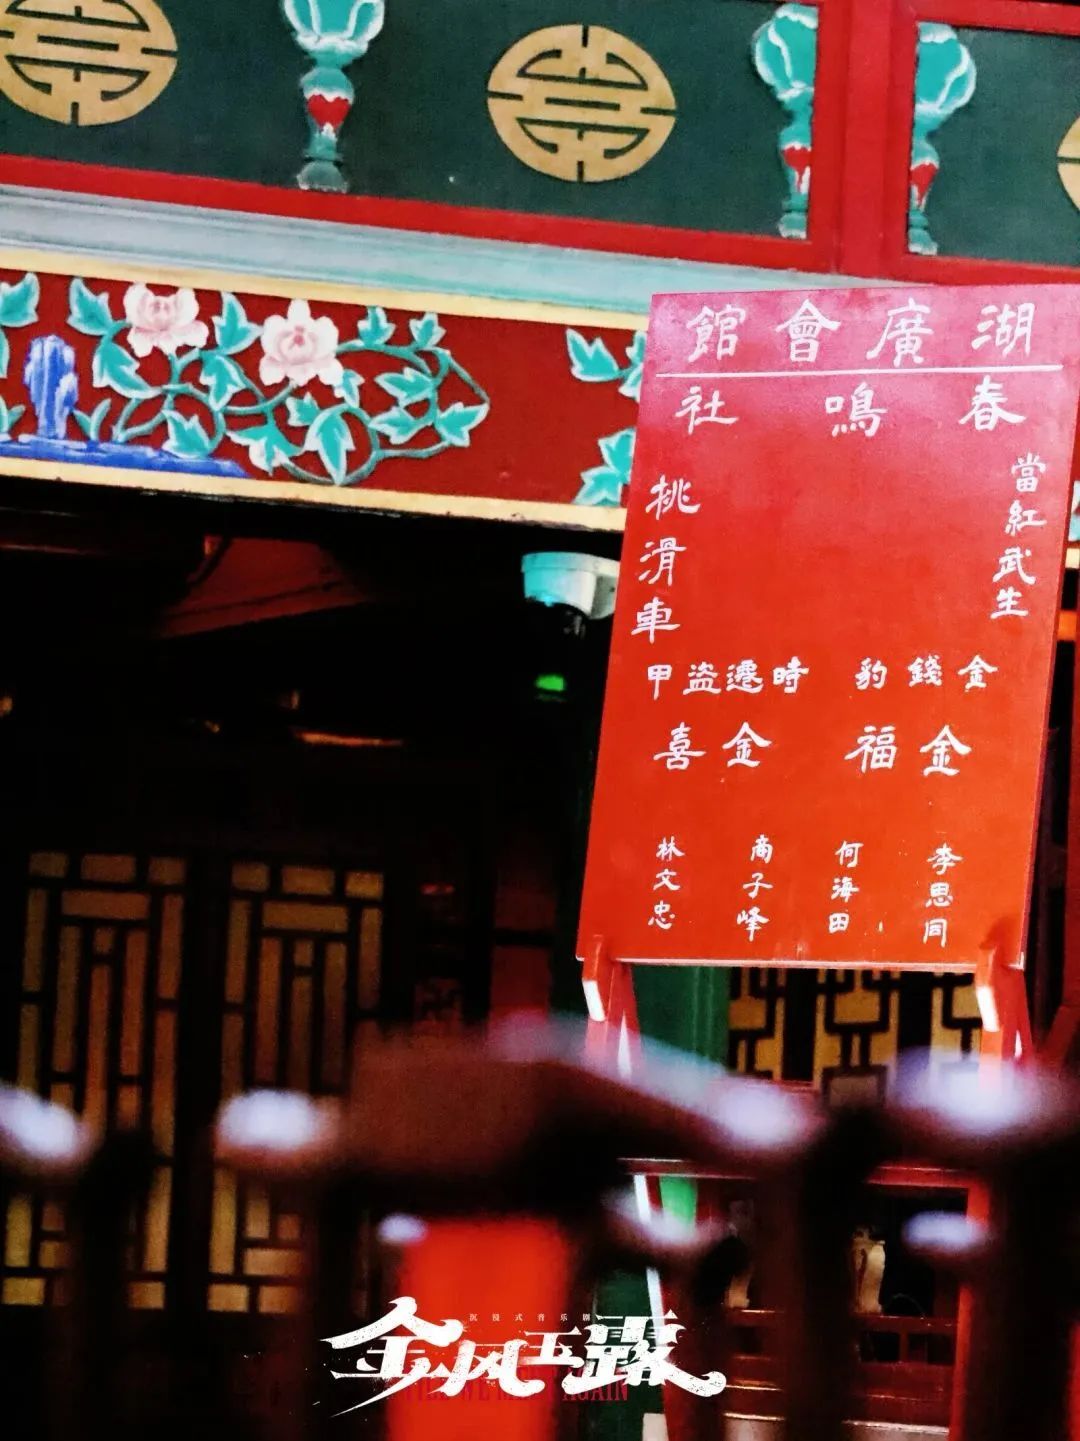 湖廣會館
春鳴社
當紅武生
桃滑車
金錢豹 時遷盗甲
金福 金喜
李思同
何海田
商子峰
林文忠
沉浸式音乐剧
金风玉露
TILL WE MEET AGAIN